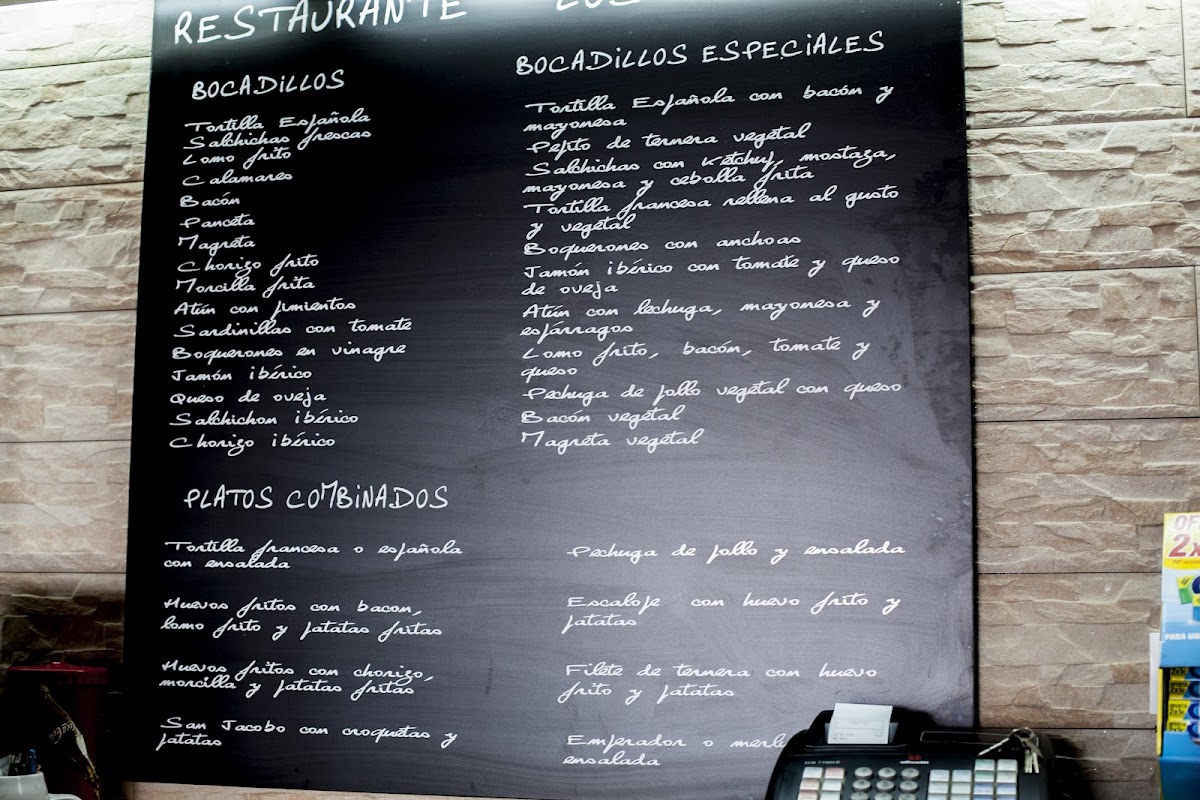 RESTAURANTE
BOCADILLOS
Tortilla Española
Salchichas frescas
Lomo frito
Calamares
Bacón
Panceta
Magreta
Chorizo frito
Morcilla frita
Atún con pimientos
Sardinillas con tomate
Boquerones en vinagre
Jamón ibérico
Queso de oveja
Salchichon ibérico
Chorizo ibérico
BOCADILLOS ESPECIALES
Tortilla Española con bacón y
mayonesa
Pepito de ternera vegetal
Salchichas con Ketchup, mostaza,
mayonesa y cebolla frita
Tortilla francesa rellena al gusto
y vegetal
Boquerones con anchoas
Jamón ibérico con tomate y queso
de oveja
Atún con lechuga, mayonesa y
espárragos
Lomo frito, bacón, tomate y
queso
Pechuga de pollo vegetal con queso
Bacón vegetal
Magreta vegetal
PLATOS COMBINADOS
Tortilla francesa o española
con ensalada
Huevos fritos con bacon,
lomo frito y patatas fritas
Huevos fritos con chorizo,
morcilla y patatas fritas
San Jacobo con croquetas y
patatas
Pechuga de pollo y ensalada
Escalope con huevo frito y
patatas
Filete de ternera con huevo
frito y patatas
Emperador o
ensalada
2x